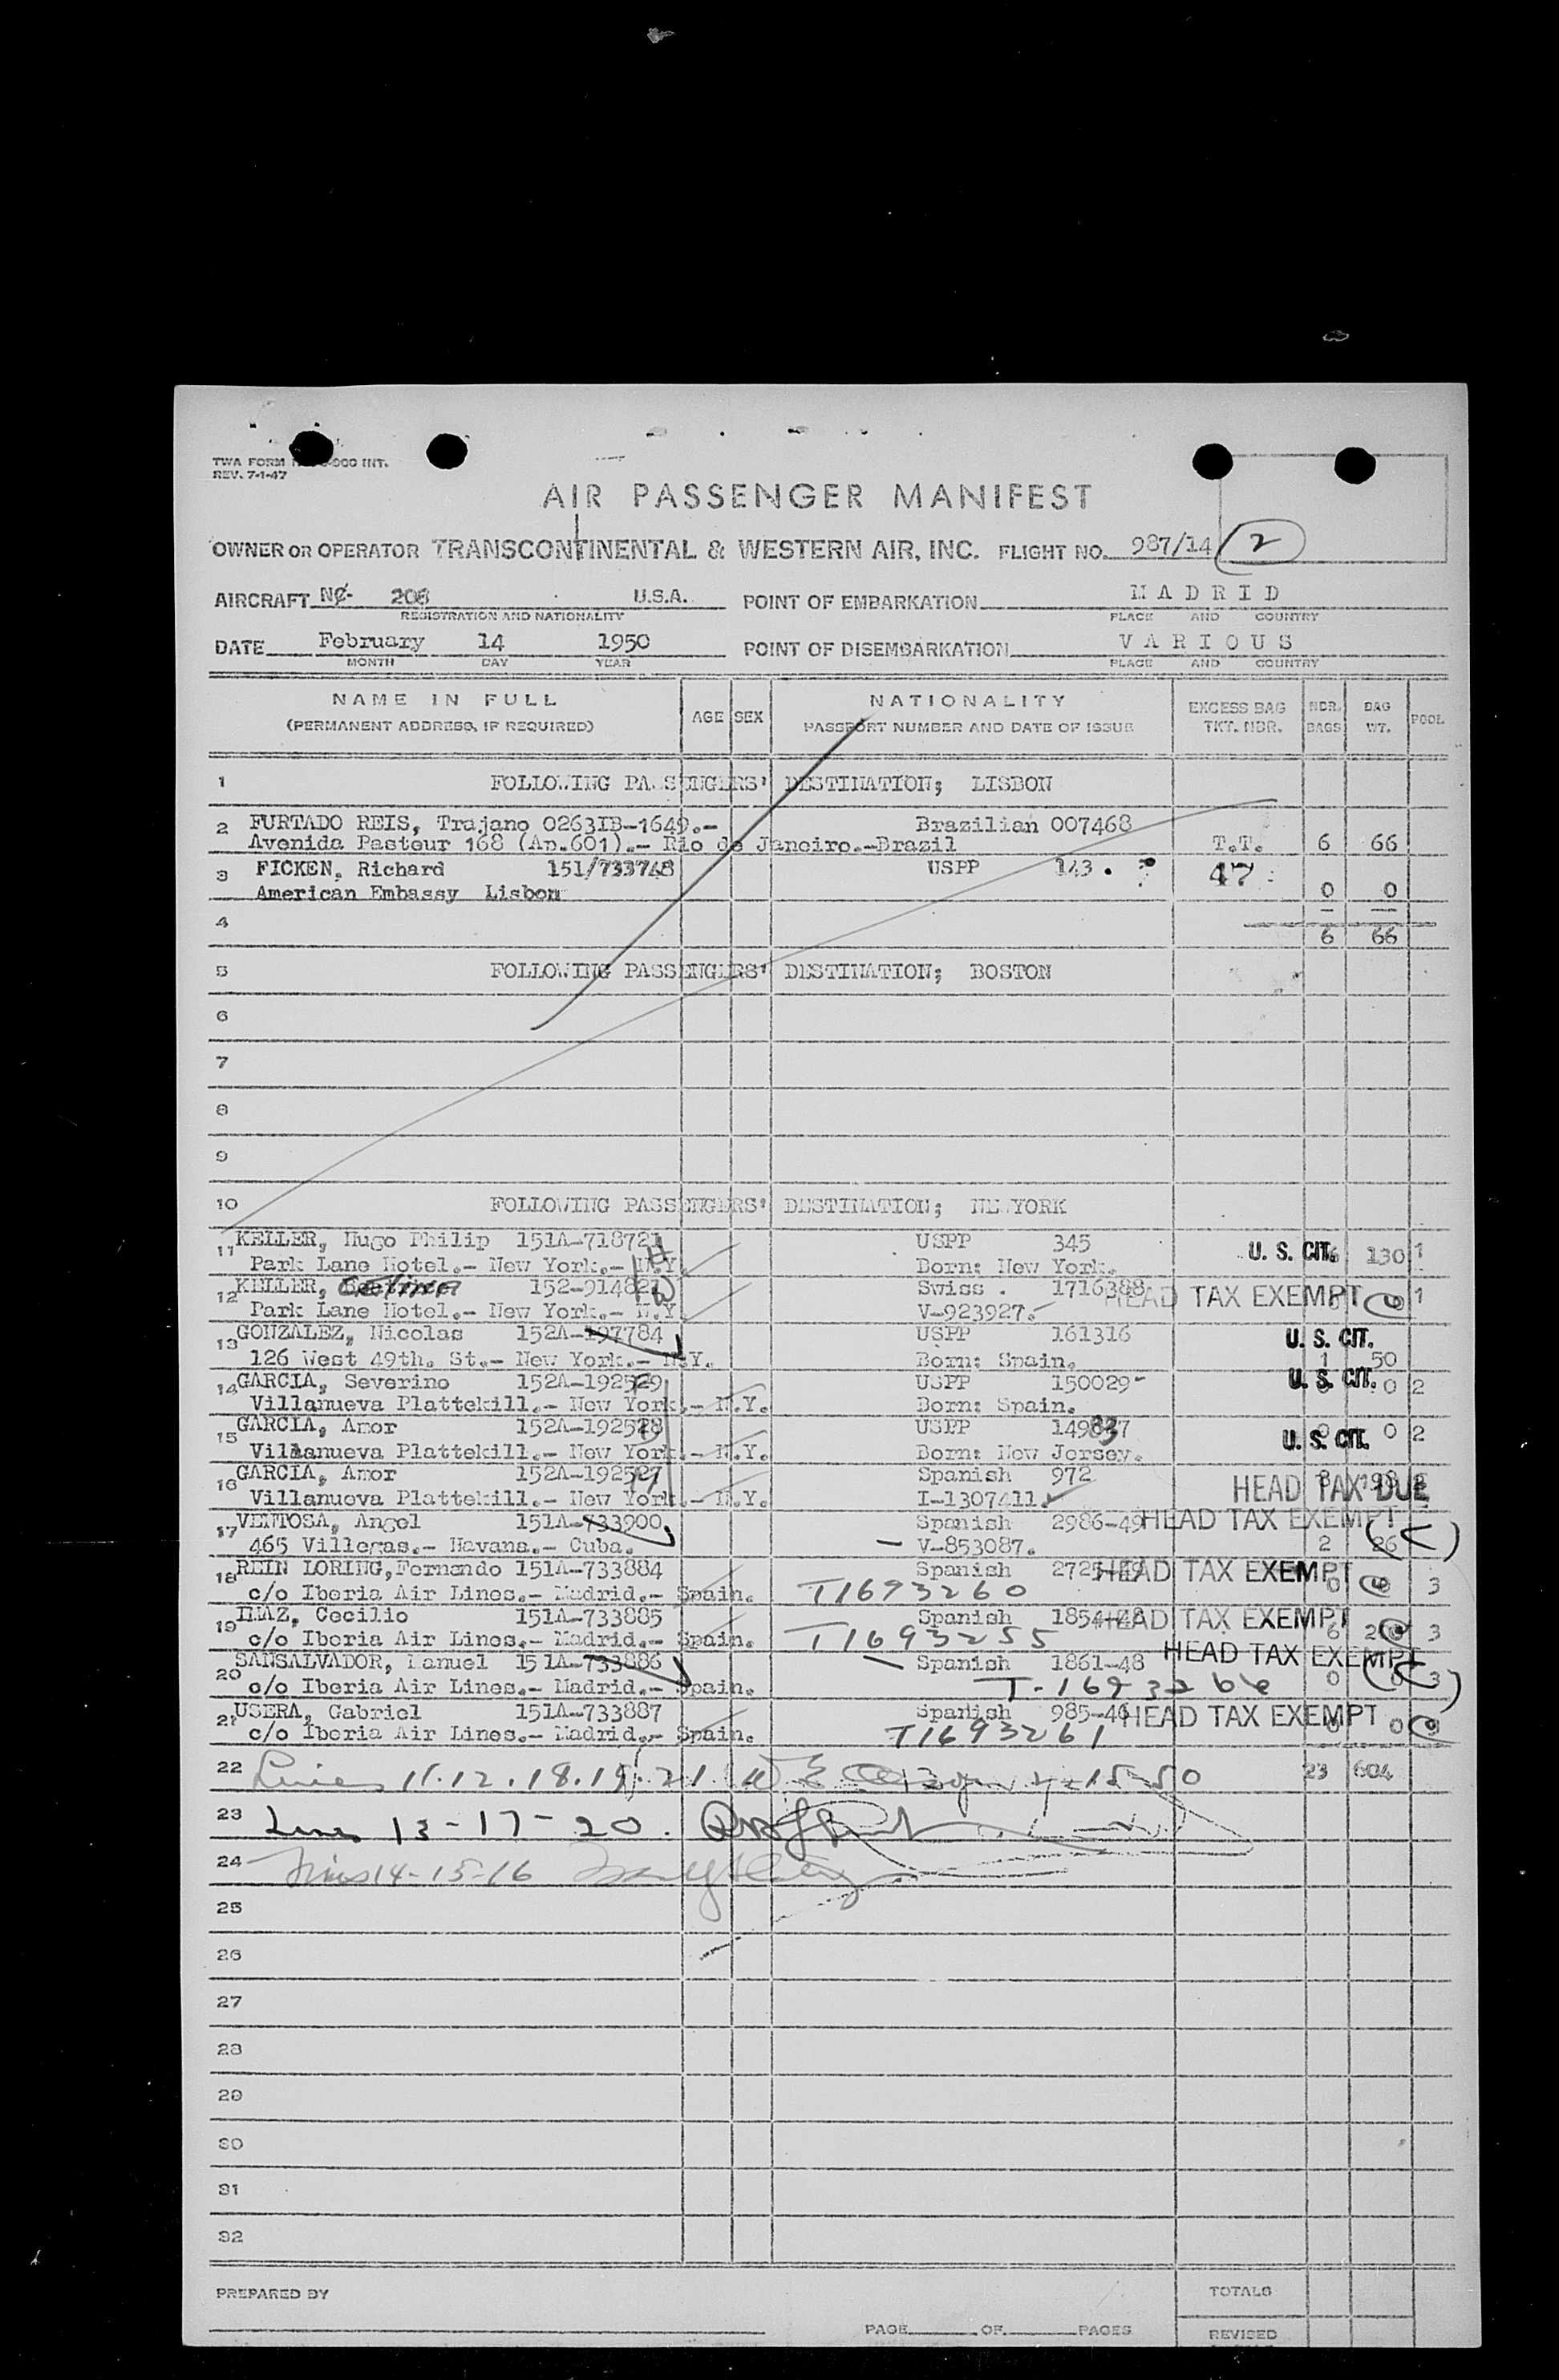 TWA FORM
REV. 7-1-47
AIR PASSENGER MANIFEST
OWNER OR OPERATOR TRANSCONTINENTAL & WESTERN AIR, INC. FLIGHT NO. 987/14 2
AIRCRAFT NC- 208 U.S.A. POINT OF EMBARKATION MADRID
REGISTRATION AND NATIONALITY PLACE AND COUNTRY
DATE February 14 1950 POINT OF DISEMBARKATION VARIOUS
MONTH DAY YEAR PLACE AND COUNTRY
NAME IN FULL AGE SEX NATIONALITY EXCESS BAG NBR. BAG POOL
(PERMANENT ADDRESS, IF REQUIRED) PASSPORT NUMBER AND DATE OF ISSUE TKT. NBR. BAGS WT.
1 FOLLOWING PASSENGERS' DESTINATION; LISBON
2 FURTADO REIS, Trajano 0263IB-1649.- Brazilian 007468
Avenida Pasteur 168 (Ap.601).- Rio de Janeiro.-Brazil T.T. 6 66
3 FICKEN, Richard 151/733748 USPP 143 . 47
American Embassy Lisbon 0 0
4 6 66
5 FOLLOWING PASSENGERS' DESTINATION; BOSTON
6
7
8
9
10 FOLLOWING PASSENGERS' DESTINATION; NEW YORK
11 KELLER, Hugo Philip 151A-718721 USPP 345
Park Lane Hotel.- New York.- N.Y. Born: New York. U. S. CIT. 6 130 1
12 KELLER, Celina 152-914821 Swiss . 1716388 HEAD TAX EXEMPT 1
Park Lane Hotel.- New York.- N.Y. V-923927.-
13 GONZALEZ, Nicolas 152A-197784 USPP 161316 U. S. CIT.
126 West 49th. St.- New York.- N.Y. Born: Spain. 1 50
14 GARCIA, Severino 152A-192529 USPP 150029- U. S. CIT. 0 2
Villanueva Plattekill.- New York.- N.Y. Born: Spain.
15 GARCIA, Amor 152A-192528 USPP 149837 U. S. CIT. 0 2
Villanueva Plattekill.- New York.- N.Y. Born: New Jersey.
16 GARCIA, Amor 152A-192527 Spanish 972 HEAD TAX DUE
Villanueva Plattekill.- New York.- N.Y. I-1307411.
17 VENTOSA, Angel 151A-733900 Spanish 2986-49 HEAD TAX EXEMPT
465 Villegas.- Havana.- Cuba. V-853087. 2 26
18 REIN LORING, Fernando 151A-733884 Spanish 2725-49 HEAD TAX EXEMPT
c/o Iberia Air Lines.- Madrid.- Spain. T1693260 0 3
19 DIAZ, Cecilio 151A-733885 Spanish 1854-48 HEAD TAX EXEMPT
c/o Iberia Air Lines.- Madrid.- Spain. T1693255 6 3
20 SANSALVADOR, Manuel 151A-733886 Spanish 1861-48 HEAD TAX EXEMPT
c/o Iberia Air Lines.- Madrid.- Spain. T-1693266 0 0 3
21 USERA, Gabriel 151A-733887 Spanish 985-46 HEAD TAX EXEMPT
c/o Iberia Air Lines.- Madrid.- Spain. T1693261 0 0
22 Lines 11.12.18.19.21 23 604
23 Lines 13-17-20.
24 Lines 14-15-16
25
26
27
28
29
30
31
32
PREPARED BY TOTALS
PAGE OF PAGES REVISED